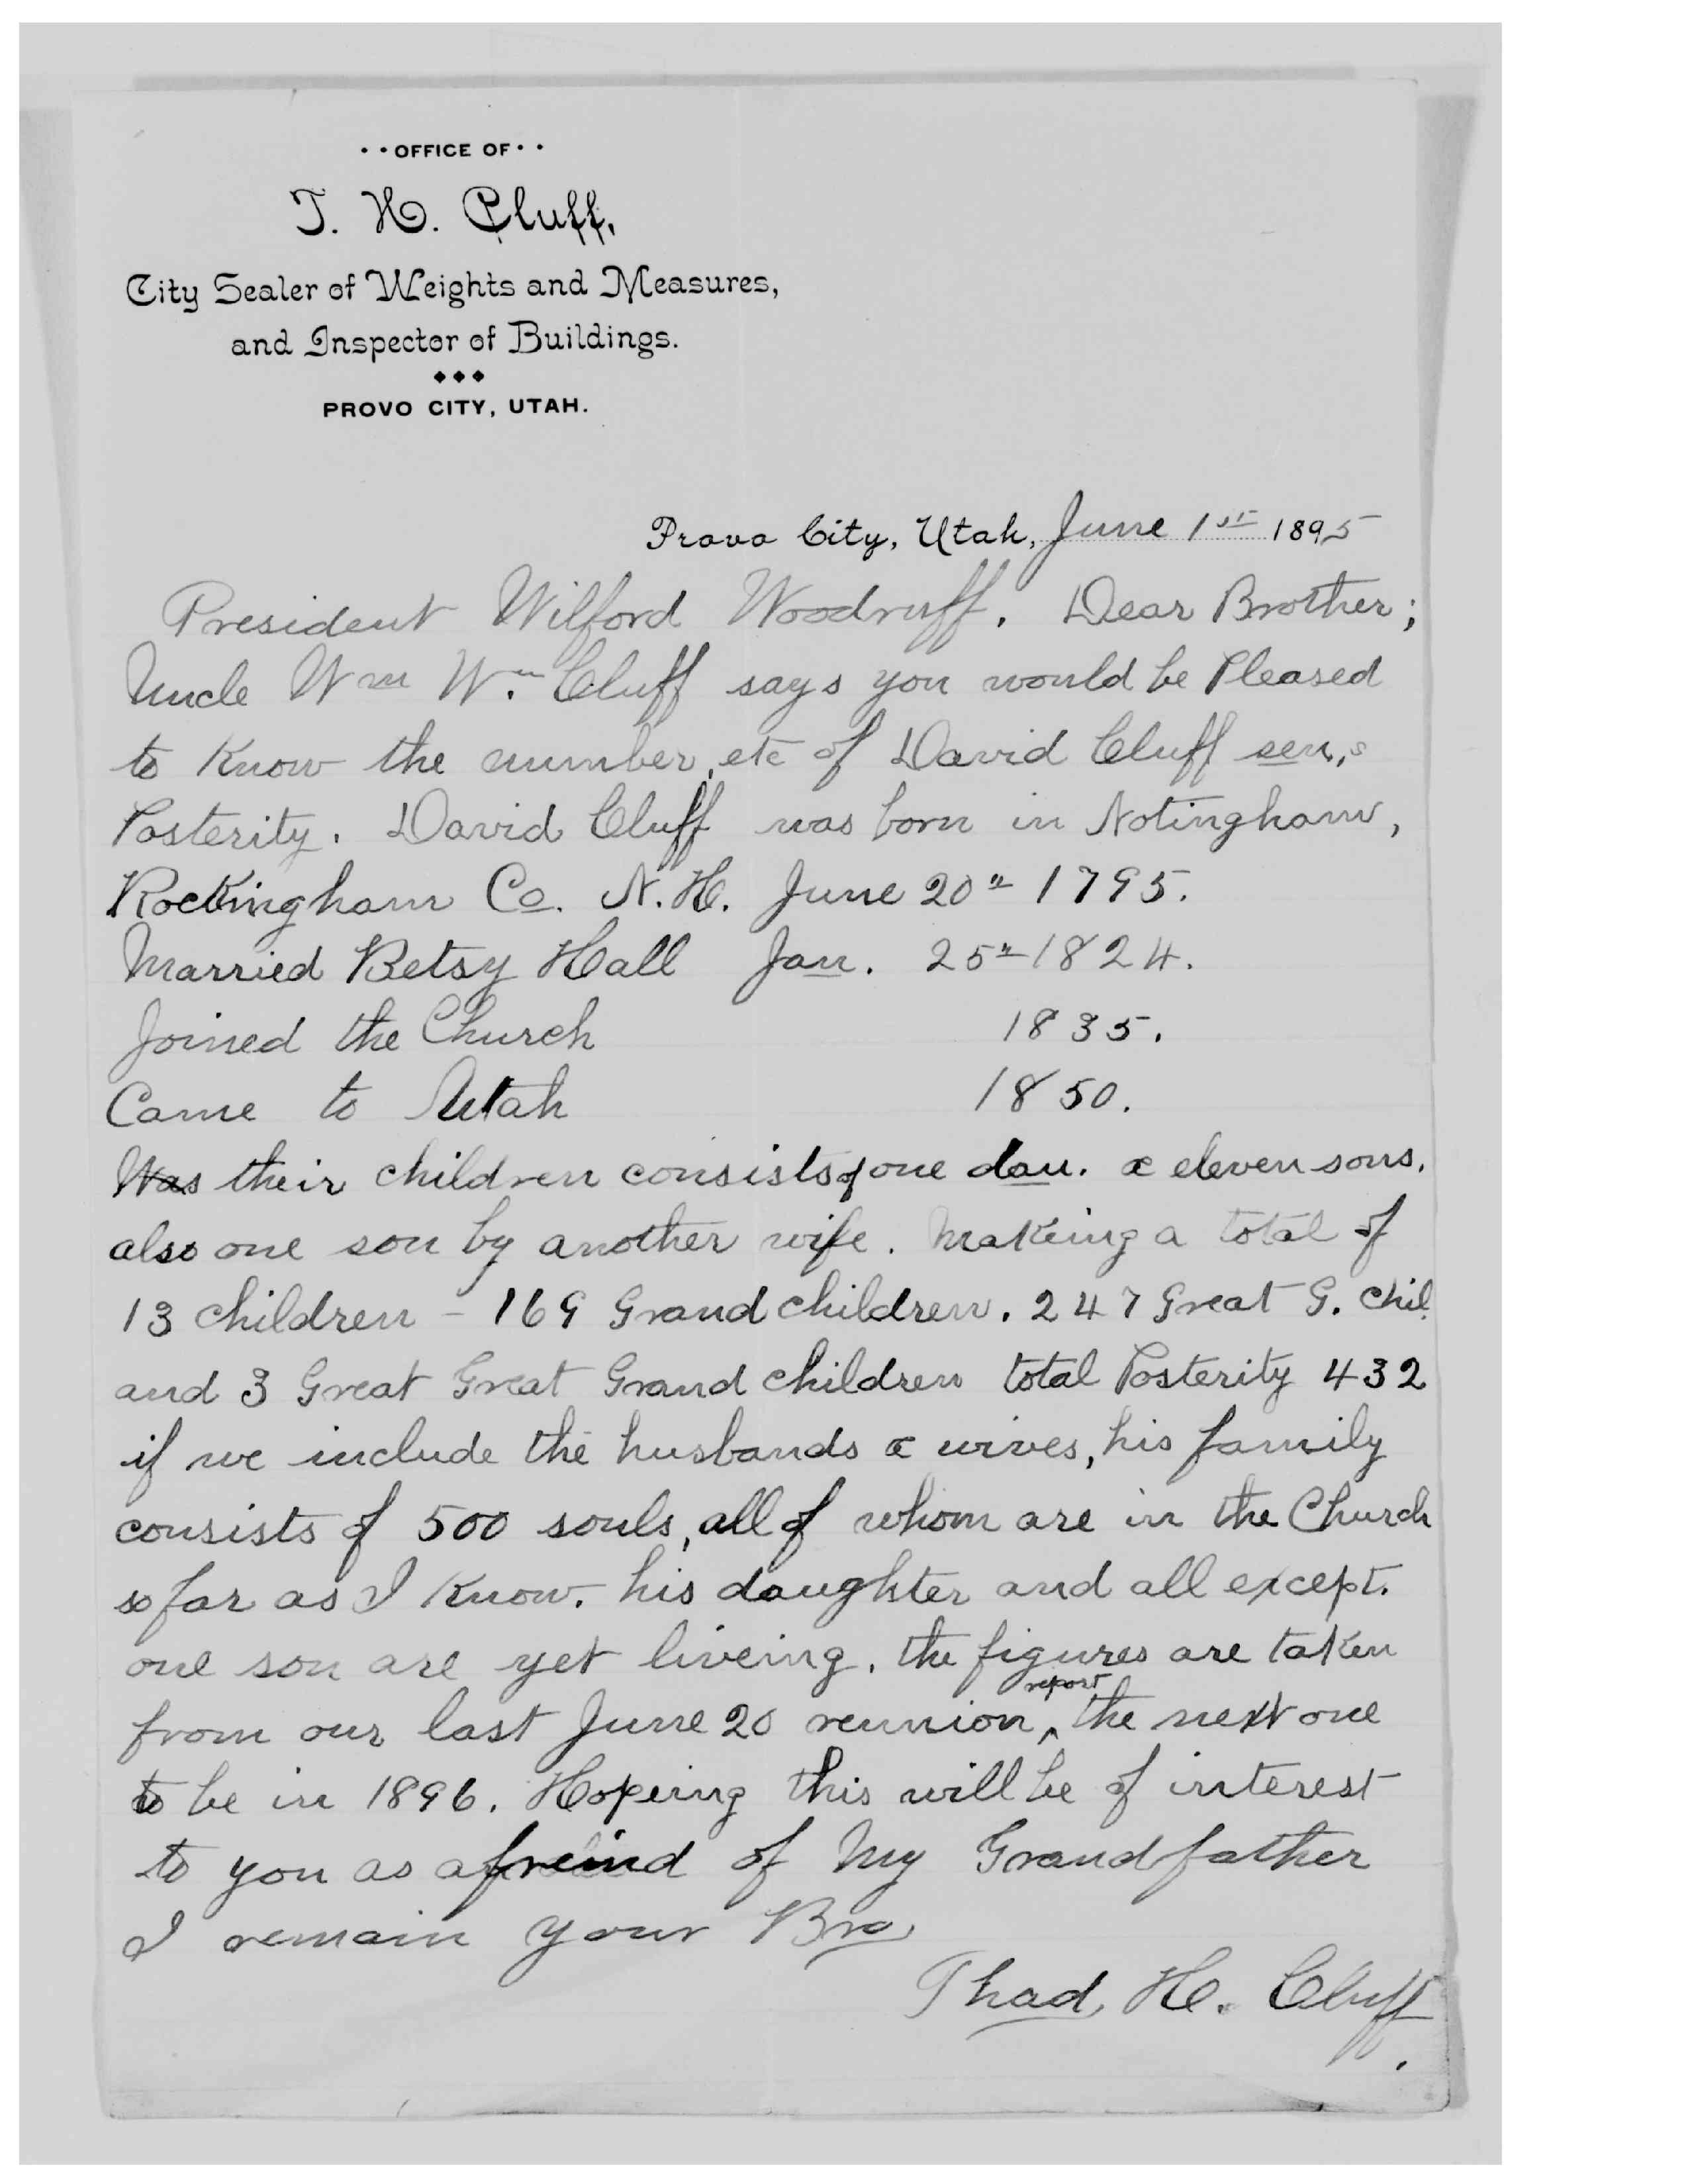 · · OFFICE OF · ·
T. H. Cluff,
City Sealer of Weights and Measures,
and Inspector of Buildings.
PROVO CITY, UTAH.
Provo City, Utah, June 1st 1895
President Wilford Woodruff. Dear Brother;
Uncle Wm W.m Cluff says you would be Pleased
to Know the number, etc of David Cluff sen,s
Posterity. David Cluff was born in Notingham,
Rockingham Co. N.H. June 20th 1795.
Married Betsy Hall Jan. 25th 1824.
Joined the Church 1835.
Came to Utah 1850.
Was their children consists of one dau. & eleven sons.
also one son by another wife. Makeing a total of
13 children - 169 Grand children. 247 Great G. chil.
and 3 Great Great Grand children total Posterity 432
if we include the husbands & wives, his family
consists of 500 souls, all of whom are in the Church
so far as I Know. his daughter and all except.
one son are yet liveing. the figures are taken
report
from our last June 20 reunion ^ the next one
to be in 1896. Hopeing this will be of interest
to you as a freind of My Grandfather
I remain your Bro,
Thad, H. Cluff.